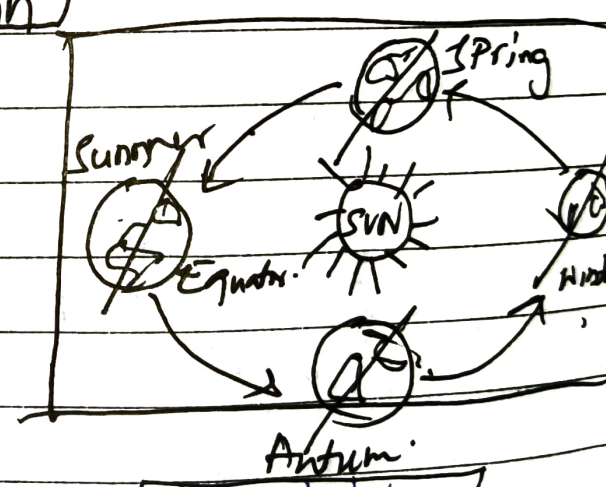 on
Spring
Summer
SUN
Equator.
Autum.